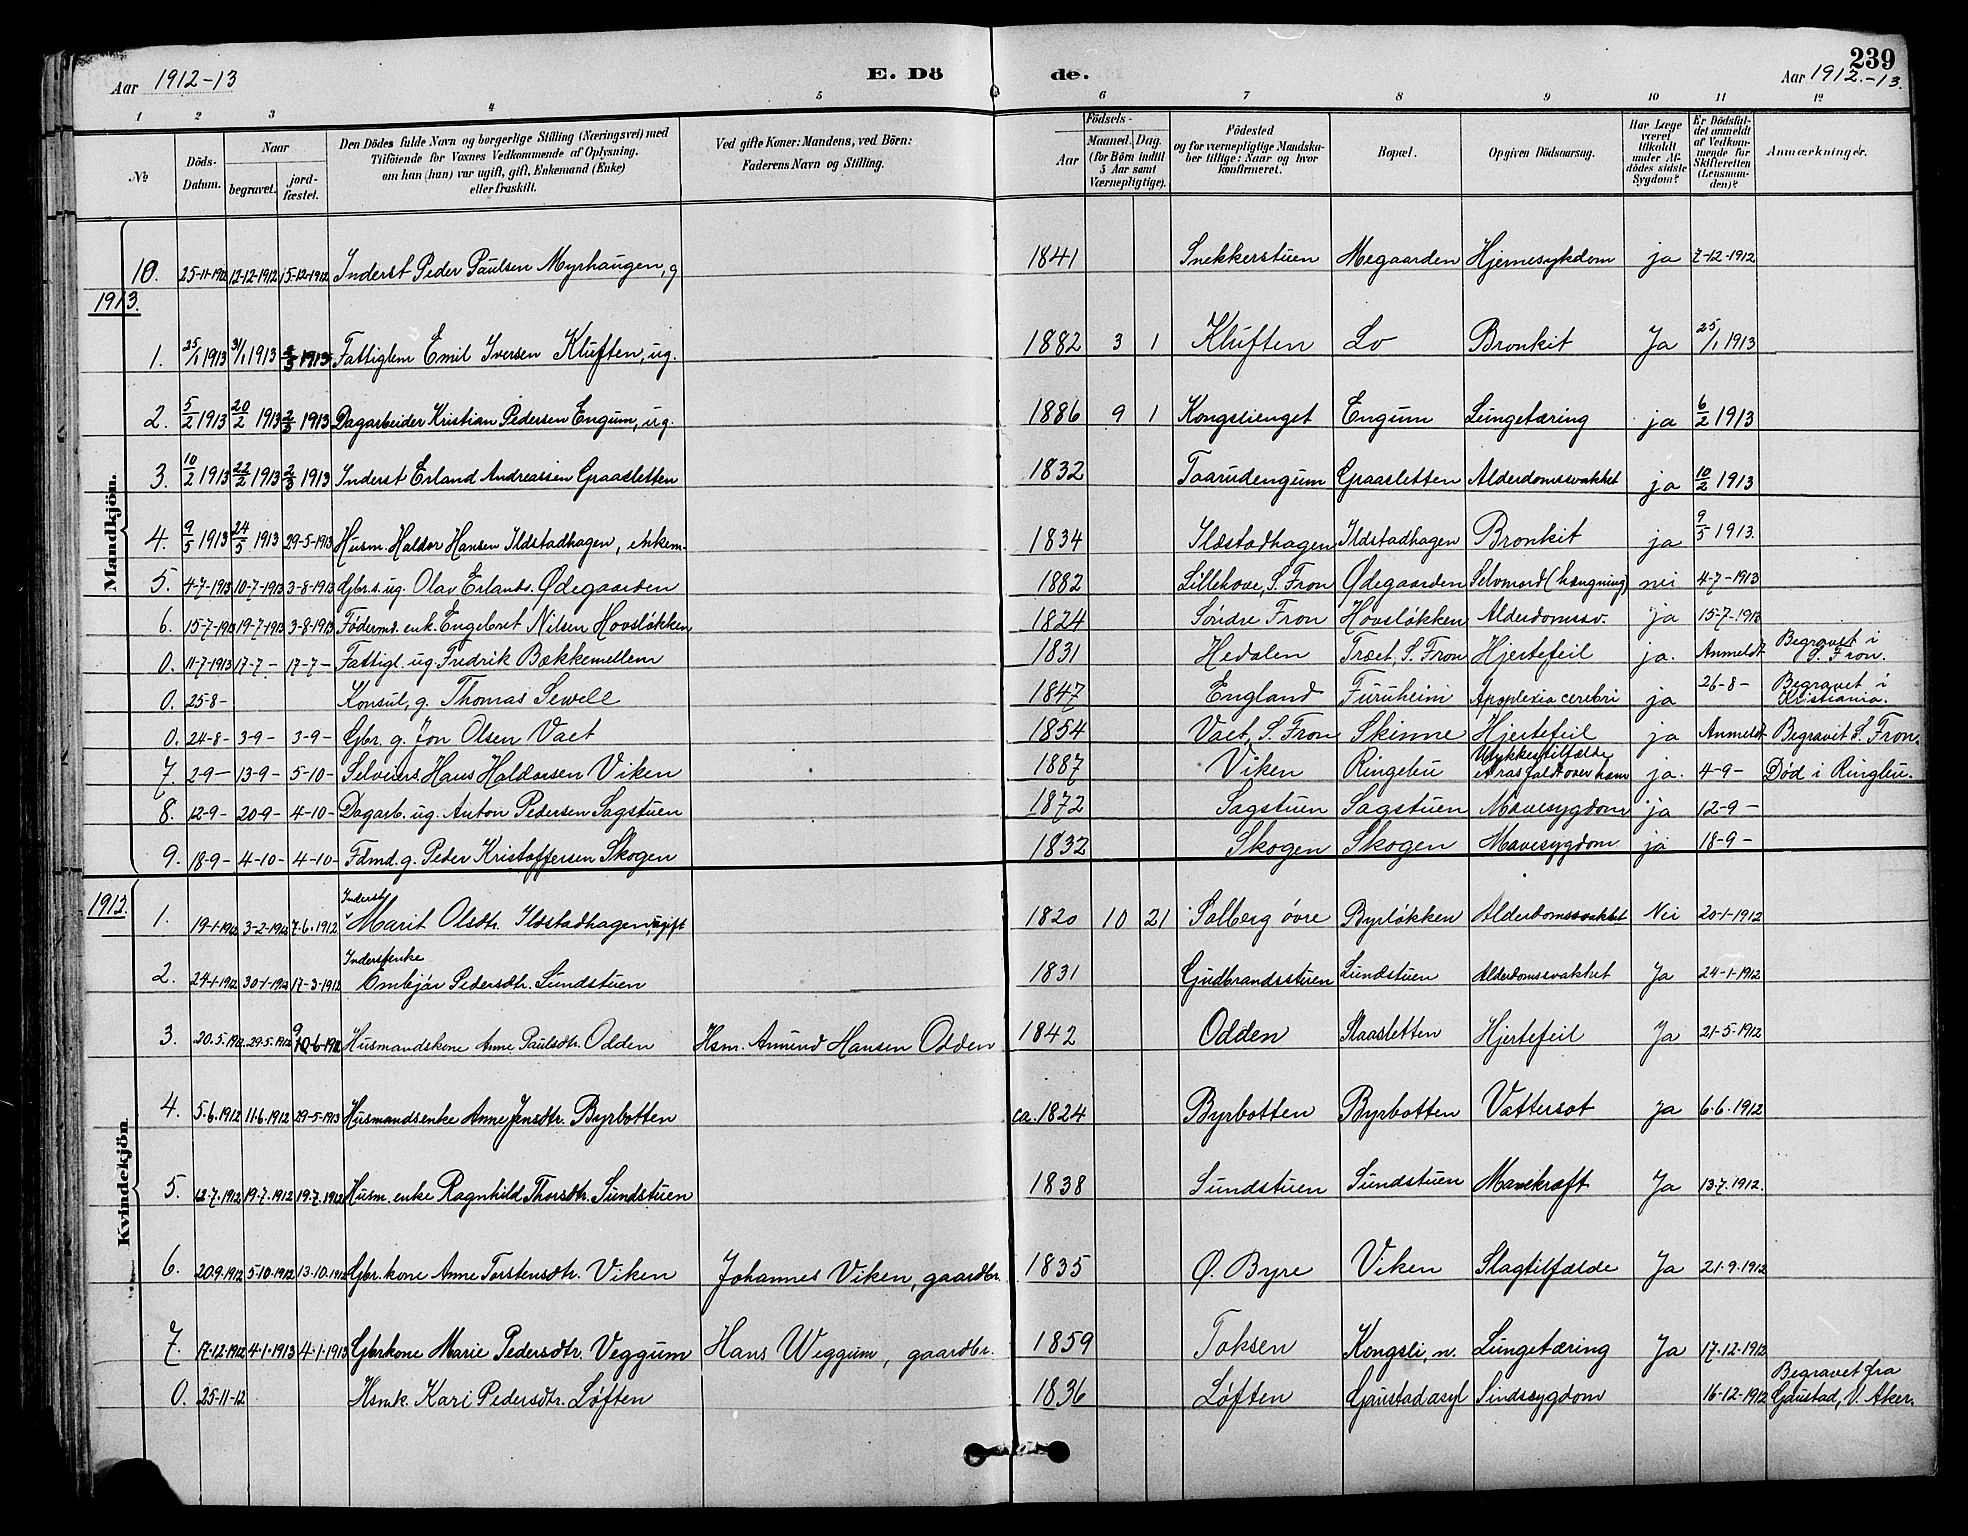 239
Aar 1912-13
E. Dö
de.
Aar 1912.-13.
1 2 3 4 5 6 7 8 9 10 11 12
No
Döds-Datum.
Naar
begravet.
jord-fæstet.
Den Dödes fulde Navn og borgerlige Stilling (Næringsvei) med
Tilföiende for Voxnes Vedkommende af Oplysning,
om han (hun) var ugift, gift, Enkemand (Enke)
eller fraskilt.
Ved gifte Koner: Mandens, ved Börn:
Faderens Navn og Stilling.
Aar
Födsels-
Maaned. Dag.
(for Börn indtil
5 Aar samt
Værnepligtige).
Födested
og for værnepligtige Mandska-
ber tillige: Naar og hvor
konfirmeret.
Bopæl.
Opgiven Dödsaarsag.
Har Læge
været
tilkaldt
under Af-
dödes sidste
Sygdom?
Er Dödsfal-
det anmeldt
af Vedkom-
mende for
Skifteretten
(Lensman-
den)?
Anmærkninger.
Mandkjön.
10. 25-11-1912 12-12-1912 15-12-1912 Inderst Peder Paulsen Myrhaugen, g 1841 Snekkerstuen Megaarden Hjernesykdom ja 7-12-1912
1913.
1. 25/1 1913 31/1 1913 2/3 1913 Fattiglem Emil Iversen Kluften, ug. 1882 3 1 Kluften Lo Bronkit Ja 25/1 1913
2. 5/2 1913 20/2 1913 2/3 1913 Dagarbeider Kristian Pedersen Engum, ug. 1886 9 1 Kongslienget Engum Lungetæring ja 6/2 1913
3. 10/2 1913 22/2 1913 2/3 1913 Inderst Erland Andreassen Graasletten 1832 Taarudengum Graasletten Alderdomssvakhet ja 10/2 1913
4. 9/5 1913 24/5 1913 29-5-1913 Husm. Haldor Hansen Ildstadhagen, enkem. 1834 Ildstadhagen Ildstadhagen Bronkit ja 9/5 1913.
5. 4-7-1913 10-7-1913 3-8-1913 Gbr.s. ug. Olav Erlands. Ødegaarden 1882 Lillehove, S. Fron Ødegaarden Selvmord (hængning) nei 4-7-1913
6. 15-7-1913 19-7-1913 3-8-1913 Födermd. enk. Engebret Nilsen Hovsløkken 1824 Söndre Fron Hovsløkken Alderdomssv. ja 15-7-1913
0. 11-7-1913 17-7- 17-7- Fattigl. ug Fredrik Bækkemellem 1831 Hedalen Træet, S. Fron Hjertefeil ja. Anmeldt Begravet i S. Fron.
0. 25-8- Konsul, g. Thomas Sewell 1847 England Furuheim Apoplexia cerebri ja 26-8- Begravet i Kristiania.
0. 24-8- 3-9- 3-9- Gbr. g. Jon Olsen Vaet 1854 Vaet, S. Fron Skinne Hjertefeil ja Anmeldt Begravet S. Fron.
7. 2-9- 13-9- 5-10- Selveiers. Hans Haldorsen Viken 1887 Viken Ringebu Ulykkestilfælde et ras faldt over ham ja. 4-9- Död i Ringebu.
8. 12-9- 20-9- 4-10- Dagarb. ug. Anton Pedersen Sagstuen 1872 Sagstuen Sagstuen Mavesygdom ja 12-9-
9. 18-9- 4-10- 4-10- Fdmd. g. Peder Kristoffersen Skogen 1832 Skogen Skogen Mavesygdom ja 18-9-
Kvindekjön.
1912.
1. 19-1-1912 3-2-1912 7.6.1912 Inderst Marit Olsdtr. Ildstadhagen, ugift 1820 10 21 Solberg övre Byrløkken Alderdomssvakhet Nei 20-1-1912
2. 24-1-1912 30-1-1912 17-3-1912 Inderstenke Embjör Pedersdtr. Sundstuen 1831 Gudbrandsstuen Sundstuen Alderdomssvakhet Ja 24-1-1912
3. 20.5.1912 29-5-1912 9-6-1912 Husmandskone Anne Paulsdtr. Odden Hsm. Amund Hansen Odden 1842 Odden Slaasletten Hjertefeil Ja 21-5-1912
4. 5.6.1912 11.6.1912 29-5-1913 Husmandsenke Anne Jensdtr. Byrbotten ca. 1824 Byrbotten Byrbotten Vattersot Ja 6.6.1912
5. 12.7.1912 19.7.1912 19.7.1912 Husm. enke Ragnhild Thorsdtr. Sundstuen 1838 Sundstuen Sundstuen Mavekræft Ja 13.7.1912.
6. 20.9.1912 5.10.1912 13.10.1912 Gbr. kone Anne Torstensdtr. Viken Johannes Viken, gaardbr. 1835 Ø. Byre Viken Slagtilfælde Ja 21.9.1912
7. 17.12.1912 4.1.1913 4.1.1913 Gbrkone Marie Pedersdtr. Veggum Hans Weggum, gaardbr. 1859 Toksen Kongsli, n. Lungetæring Ja 17.12.1912
0. 25-11-12 Hsmk. Kari Pedersdtr. Løften 1836 Løften Gaustad asyl Sindssygdom 16-12-1912 Begravet fra Gaustad, V. Aker.